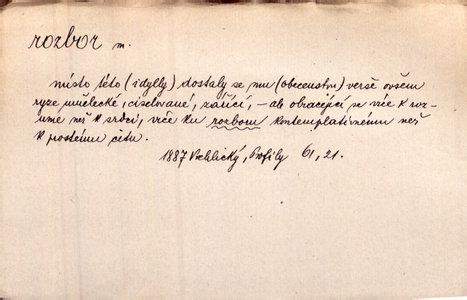 rozbor m.
místo této (idylly) dostaly se mu (obecenstvu) verše ovšem
ryze umělecké, ciselované, zářící, – ale obracející se více k roz-
umu než k srdci, více ku rozboru kontemplativnímu než
k prostému citu.
1887 Vrchlický, Profily 61, 21.